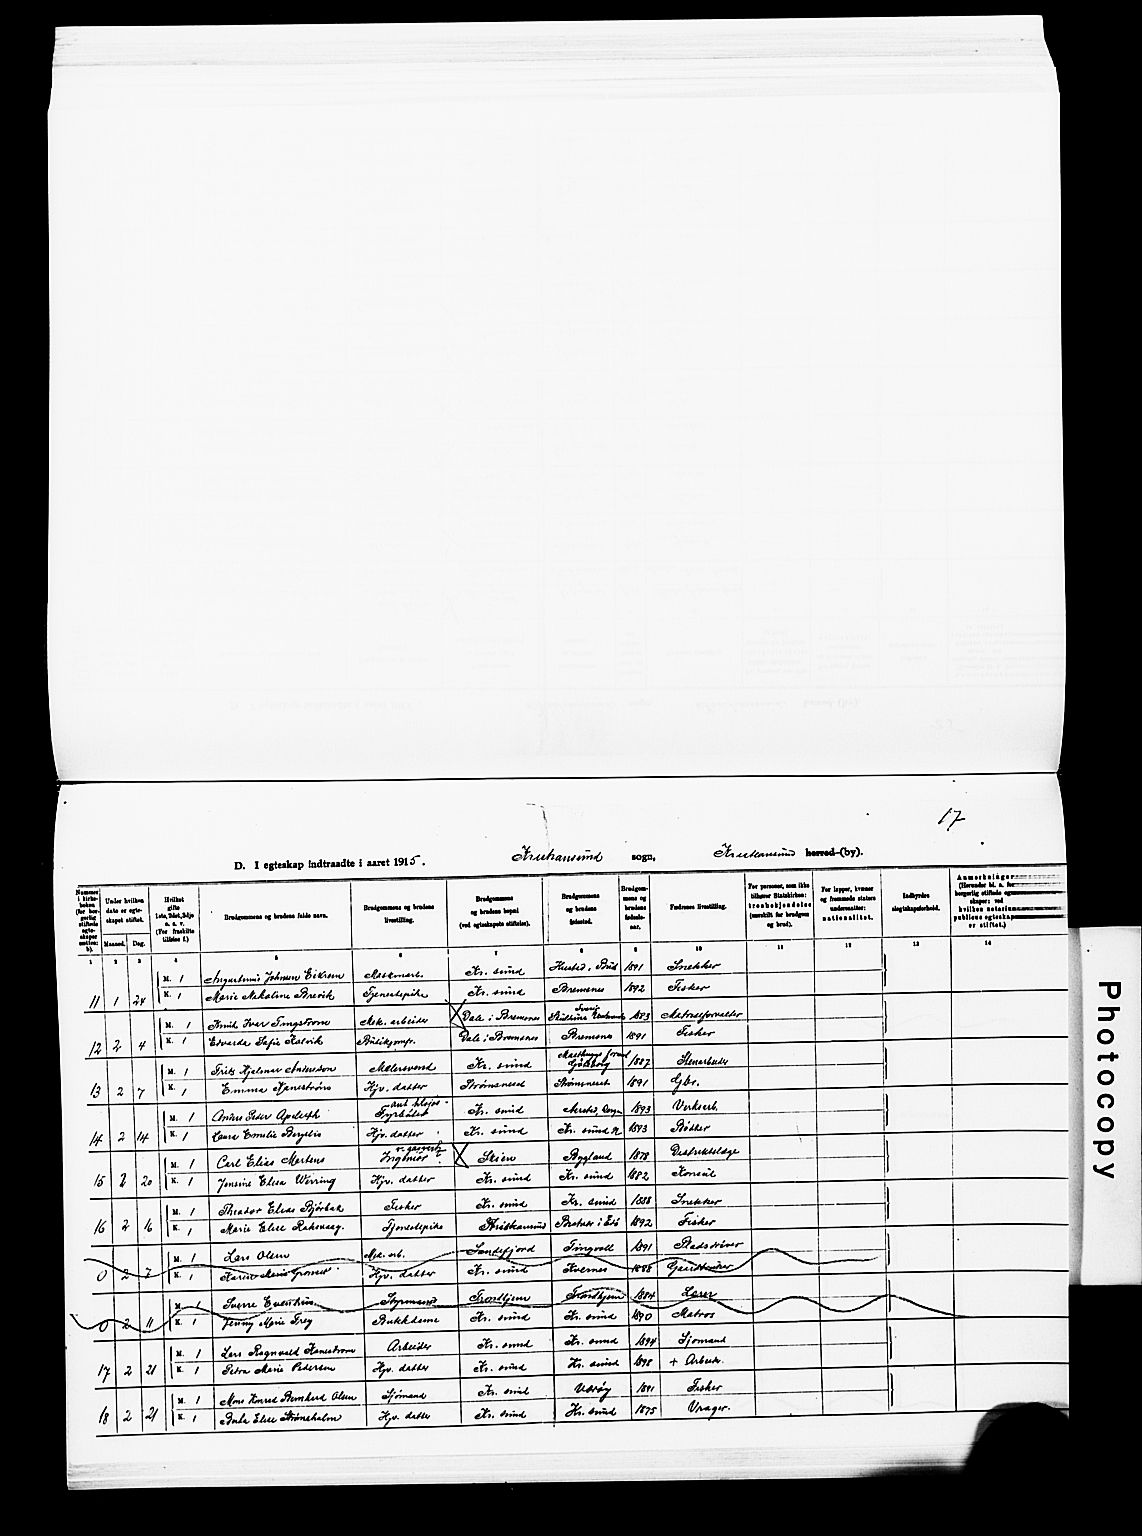 17
D. I egteskap indtraadte i aaret 1915. Kristiansund sogn, Kristiansund herred (by).
Nummer i kirkeboken (for borgerlig stiftede egteskaper notion: b).
Under hvilken dato er egteskapet stiftet.
Maaned. Dag.
Hvilket gifte 1ste, 2det, 3dje o. s. v. (For fraskilte tilføies f.)
Brudgommens og brudens fulde navn.
Brudgommens og brudens livsstilling.
Brudgommens og brudens bopæl (ved egteskapets stiftelse).
Brudgommens og brudens fødested.
Brudgommens og brudens fødselsaar.
Fædrenes livsstilling.
For personer, som ikke tilhører Statskirken: trosbekjendelse (særskilt for brudgom og brud).
For lapper, kvæner og fremmede staters undersaatter: nationalitet.
Indbyrdes slegtskapsforhold.
Anmerkninger (Herunder bl. a. for borgerlig stiftede egteskaper: ved hvilken notarius publicus egteskapet er stiftet.)
1 2 3 4 5 6 7 8 9 10 11 12 13 14
M. 1 Johnsen Eiksen Kr. sund Hustad i Bud 1891 Snekker
11 1 24 K. 1 Marie Nekoline Brevik Tjenestepike Kr. sund Bremsnes 1892 Fisker
M. 1 Knud Ivar Mek. arbeider Dale i Bremsnes Sverig 1883 Materialforvalter
12 2 4 K. 1 Edvarda Sofie Kalvik Dale i Bremsnes Bremsnes 1891 Fisker
M. 1 Fritz Hjalmar Andersson Malersvend Kr. sund Gøteborg 1887 Stenarbeider
13 2 7 K. 1 Emma Strømsnes Strømsneset 1891 Gbr.
M. 1 Anders Peder Fyrbøter Kr. sund 1893 Verksarb.
14 2 14 K. 1 Laura Emelie Berglie Hjv. datter Kr. sund Kr. sund N 1893 Bøtker
M. 1 Carl Elias Mertens Ingeniør v. gasverk Skien Bygland 1878 Distriktslæge
15 2 20 K. 1 Jensine Elisa Werring Hjv. datter Kr. sund Kr. sund 1882 Konsul
M. 1 Theodor Elias Bjørbak Fisker Kr. sund Kr. sund 1888 Snekker
16 2 16 K. 1 Marie Elise Tjenestepike Kristiansund i Edø 1892 Fisker
M. 1 Lars Olsen Mek. arb. Sandefjord Tingvoll 1891 Stadsdriver
0 2 7 K. 1 Karen Marie Hjv. datter Kr. sund Kvernes 1888 Gaardbruker
M. 1 Sverre Styrmand Trondhjem Trondhjem 1884 Lærer
0 2 11 K. 1 Jenny Marie Frey Butikdame Kr. sund Kr. sund 1890 Matros
M. 1 Lars Ragnvald Arbeider Kr. sund Kr. sund 1894 Sjømand
17 2 21 K. 1 Petra Marie Pedersen Hjv. datter Kr. sund Kr. sund 1898 + Arbeider.
M. 1 Mons Konrad Bernhard Olsen Sjømand Kr. sund 1891 Fisker
18 2 21 K. 1 Elise Strømsholm Hjv. datter Kr. sund Kr. sund 1875 Vrager.
Photocopy